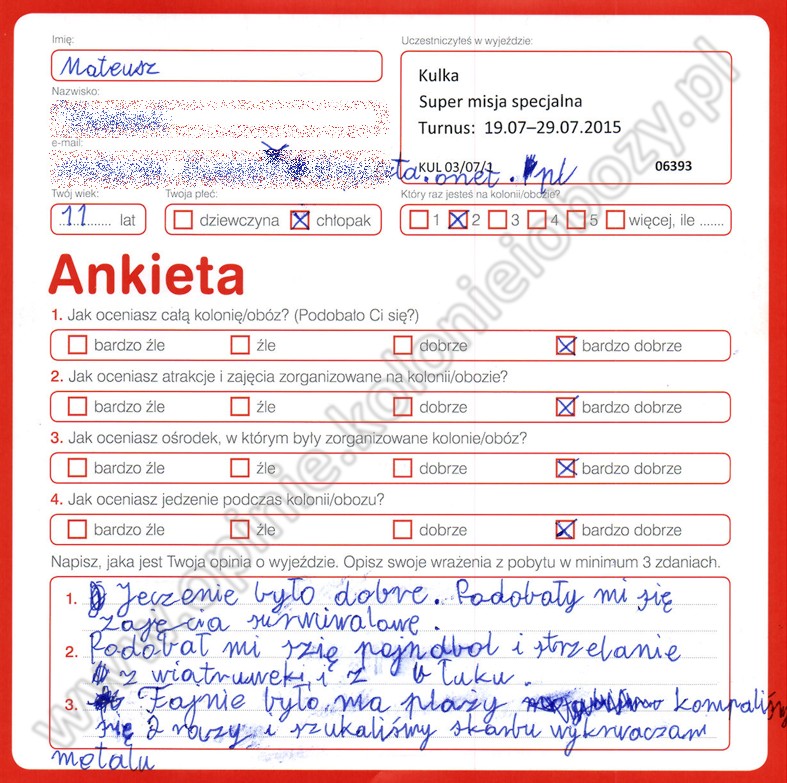 Imię:
Uczestniczyłeś w wyjeździe:
Mateusz
Kulka
Super misja specjalna
Turnus: 19.07–29.07.2015
KUL 03/07/1
06393
Nazwisko:
e-mail:
ta.onet.pl
Twój wiek:
Twoja płeć:
Który raz jesteś na kolonii/obozie?
11 lat
dziewczyna
chłopak
1
2
3
4
5
więcej, ile .......
Ankieta
1. Jak oceniasz całą kolonię/obóz? (Podobało Ci się?)
bardzo źle
źle
dobrze
bardzo dobrze
2. Jak oceniasz atrakcje i zajęcia zorganizowane na kolonii/obozie?
bardzo źle
źle
dobrze
bardzo dobrze
3. Jak oceniasz ośrodek, w którym były zorganizowane kolonie/obóz?
bardzo źle
źle
dobrze
bardzo dobrze
4. Jak oceniasz jedzenie podczas kolonii/obozu?
bardzo źle
źle
dobrze
bardzo dobrze
Napisz, jaka jest Twoja opinia o wyjeździe. Opisz swoje wrażenia z pobytu w minimum 3 zdaniach.
1. Jeczenie było dobre. Podobały mi się
zajęcia surwiwalowe.
2. Podobał mi szię pajndbol i strzelanie
z wiatruweki i z łuku.
3. Fajnie było ma plaży kompaliśmy
się 2 razy i szukaliśmy skarbu wykrwaczam
metalu
www.opinie.kolonieiobozy.pl